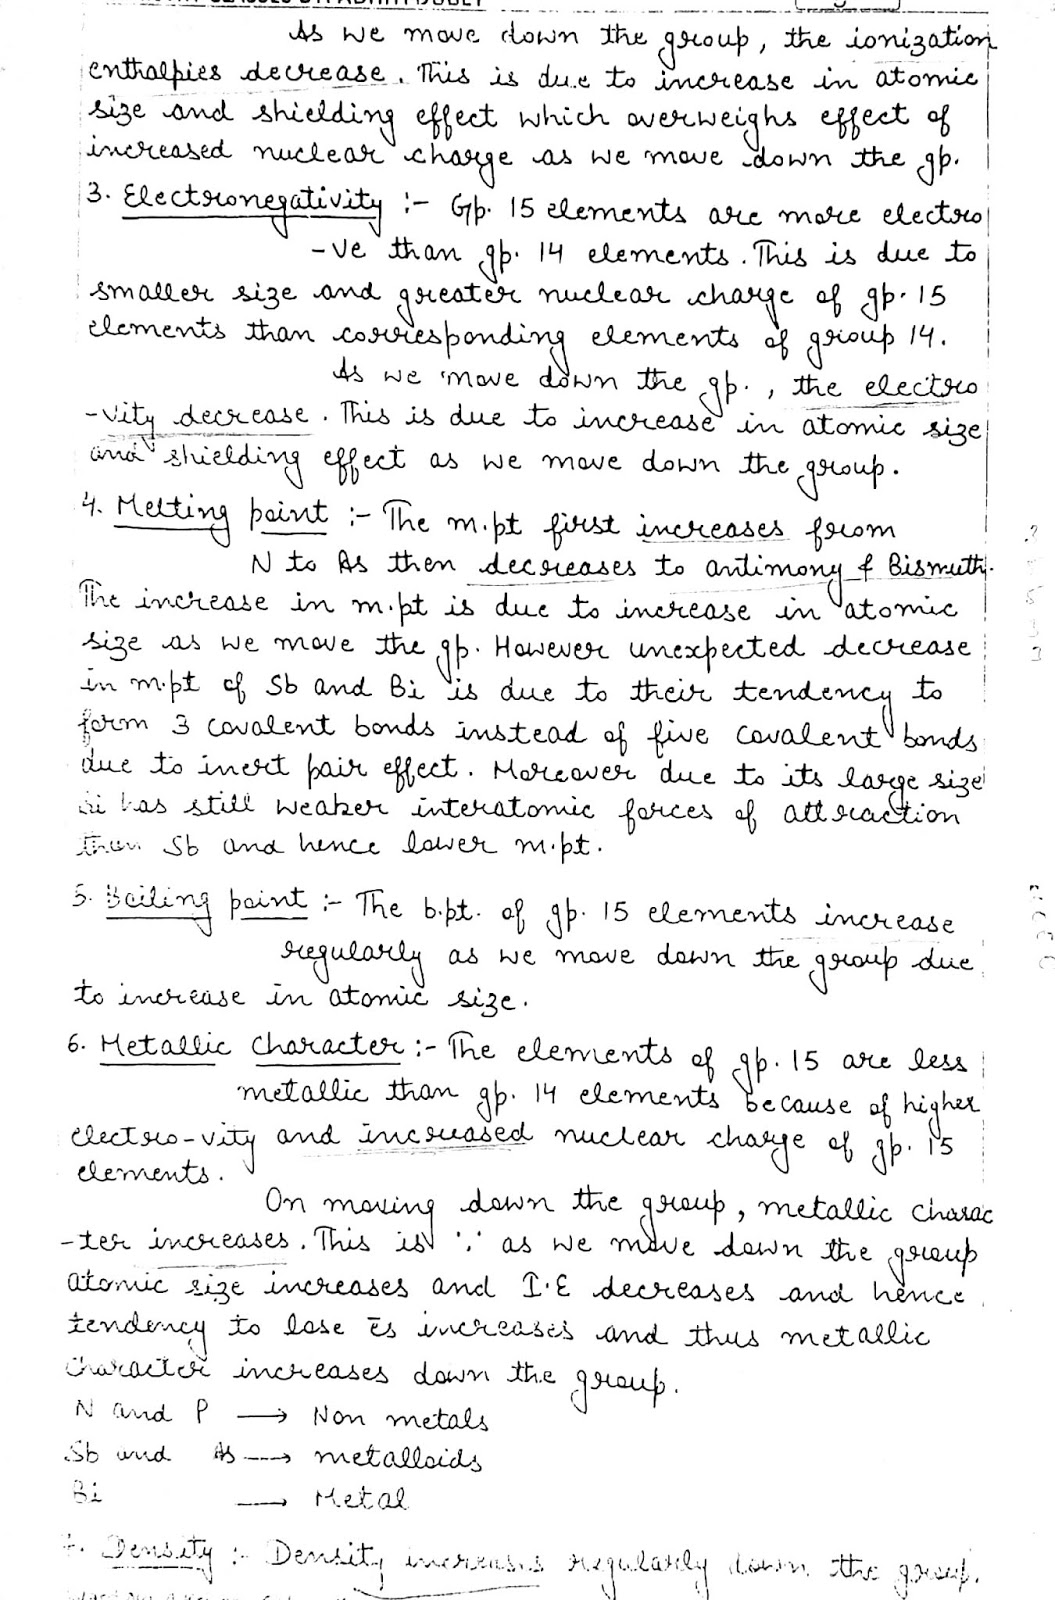 As we move down the group, the ionization
enthalpies decrease. This is due to increase in atomic
size and shielding effect which overweighs effect of
increased nuclear charge as we move down the gp.
3. Electronegativity :- Gp. 15 elements are more electro
-ve than gp. 14 elements. This is due to
smaller size and greater nuclear charge of gp. 15
elements than corresponding elements of group 14.
As we move down the gp., the electro
-vity decrease. This is due to increase in atomic size
and shielding effect as we move down the group.
4. Melting point :- The m.pt first increases from
N to As then decreases to antimony & Bismuth.
The increase in m.pt is due to increase in atomic
size as we move the gp. However unexpected decrease
in m.pt of Sb and Bi is due to their tendency to
form 3 covalent bonds instead of five covalent bonds
due to inert pair effect. Moreover due to its large size
Bi has still weaker interatomic forces of attraction
than Sb and hence lower m.pt.
5. Boiling point :- The b.pt. of gp. 15 elements increase
regularly as we move down the group due
to increase in atomic size.
6. Metallic character :- The elements of gp. 15 are less
metallic than gp. 14 elements because of higher
electro-vity and increased nuclear charge of gp. 15
elements.
On moving down the group, metallic charac
-ter increases. This is ∵ as we move down the group
atomic size increases and I.E decreases and hence
tendency to lose ēs increases and thus metallic
character increases down the group.
N and P ⟶ Non metals
Sb and As ⟶ metalloids
Bi ⟶ Metal
7. Density :- Density increases regularly down the group.